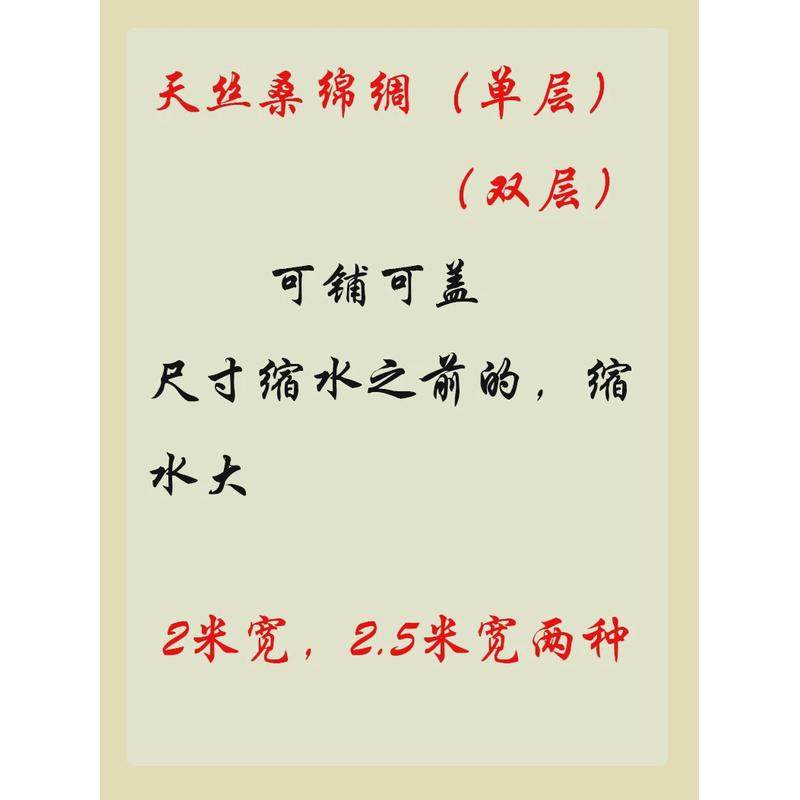 天丝桑绵绸（单层）
（双层）
可铺可盖
尺寸缩水之前的，缩
水大
2米宽，2.5米宽两种